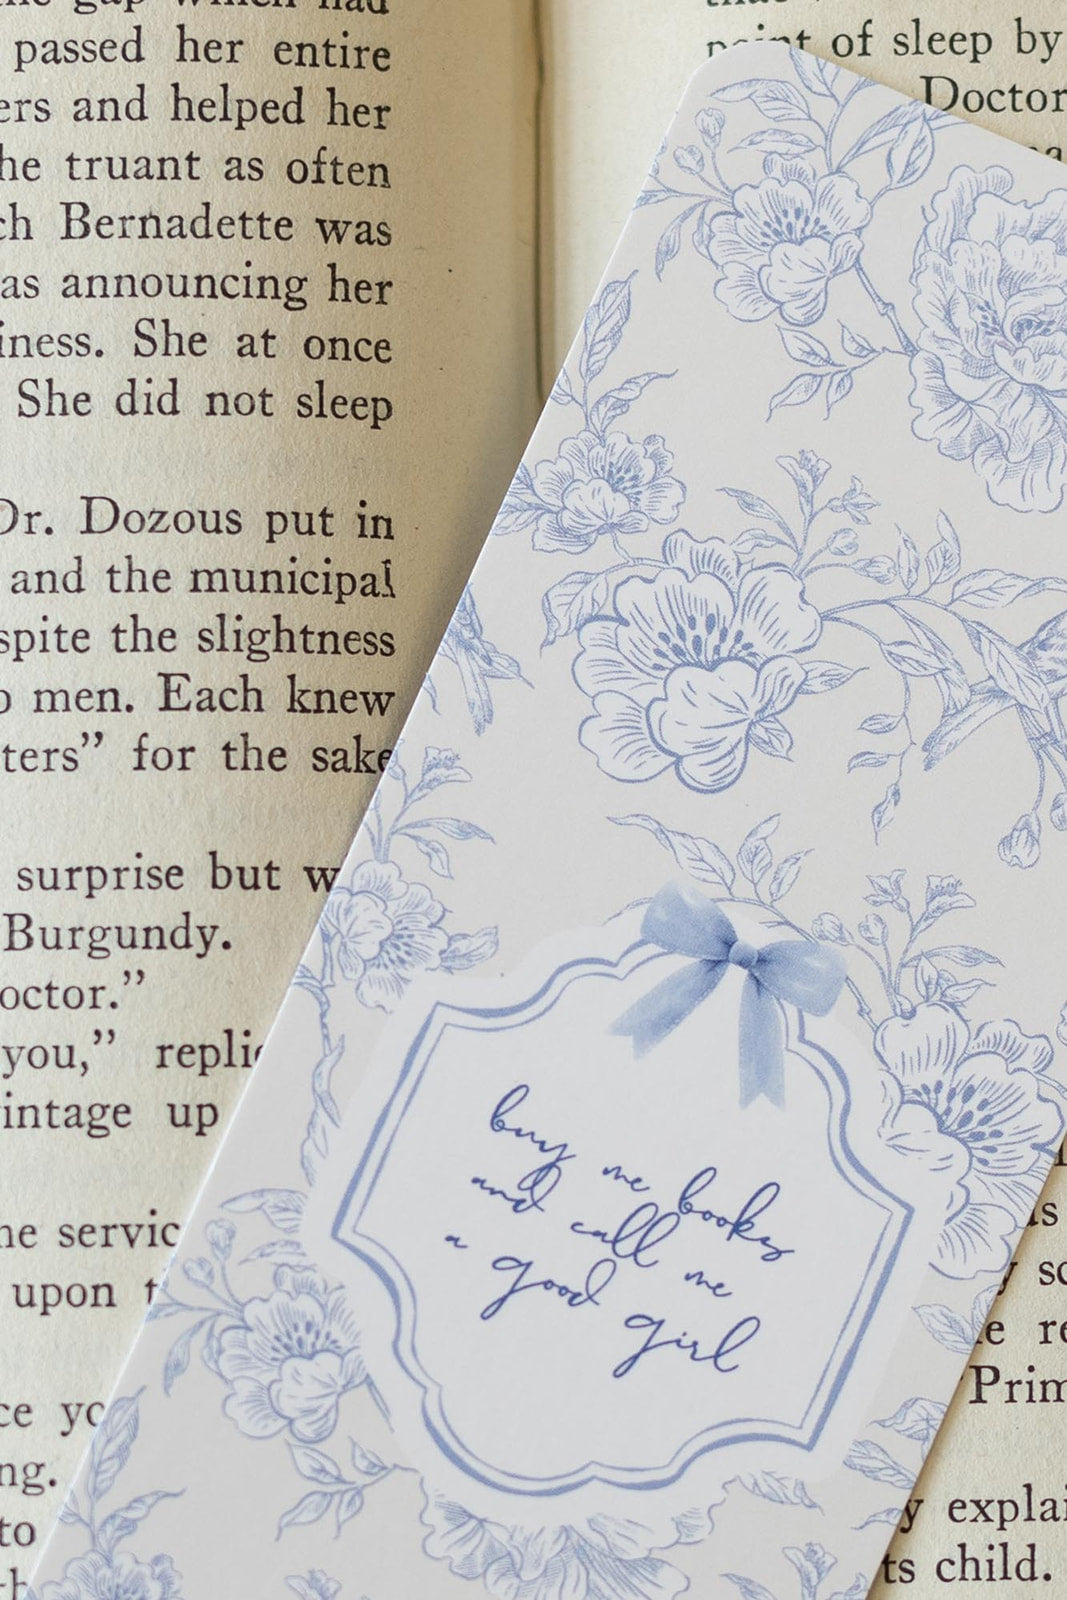 the gap which had
passed her entire
ers and helped her
he truant as often
ch Bernadette was
as announcing her
iness. She at once
She did not sleep
Dr. Dozous put in
and the municipal
spite the slightness
o men. Each knew
ters” for the sake
surprise but w
Burgundy.
octor.”
you,” replie
intage up
he servic
upon t
ce yo
ng.
to
point of sleep by
Doctor
buy me books
and call me
a good girl
as
y sc
e re
Prim
y explai
ts child.